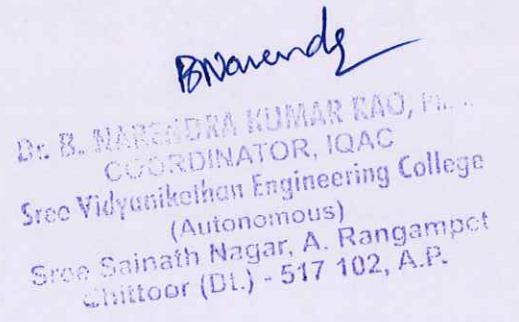 BNarendr
Dr. B. NARENDRA KUMAR RAO,
COORDINATOR, IQAC
Sree Vidyanikethan Engineering College
(Autonomous)
Sree Sainath Nagar, A. Rangampet
Chittoor (Dt.) - 517 102, A.P.